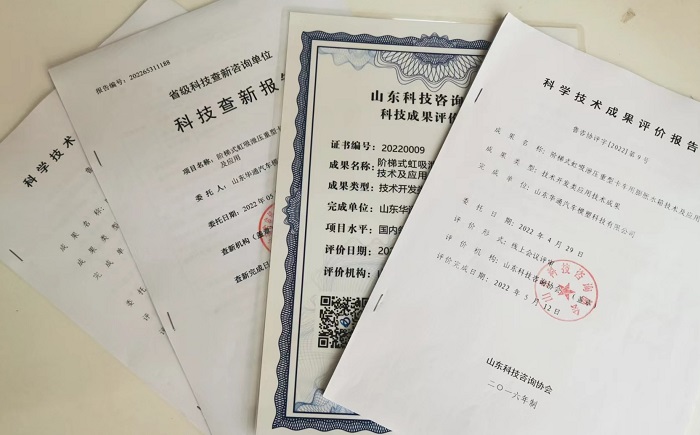 科学技术
成果名
成果类型
完成单
委
评
评
报告编号：202265311188
省级科技查新咨询单位
科技查新报
项目名称：阶梯式虹吸泄压重型卡
及应用
委托人：山东华通汽车模
委托日期：2022年05
查新机构（盖章
查新完成日
山东科技咨询
科技成果评价
证书编号：20220009
成果名称：阶梯式虹吸泄
技术及应用
成果类型：技术开发
完成单位：山东华
项目水平：国内
评价日期：202
评价机构：山
科学技术成果评价报告
鲁咨协评字[2022]第9号
成果名称：阶梯式虹吸泄压重型卡车用膨胀水箱技术及应用
成果类型：技术开发类应用技术成果
完成单位：山东华通汽车模塑科技有限公司
委托日期：2022年4月29日
评价形式：线上会议评审
评价机构：山东科技咨询协会（盖章
评价完成日期：2022年5月12日
山东科技咨询协会
二〇一六年制